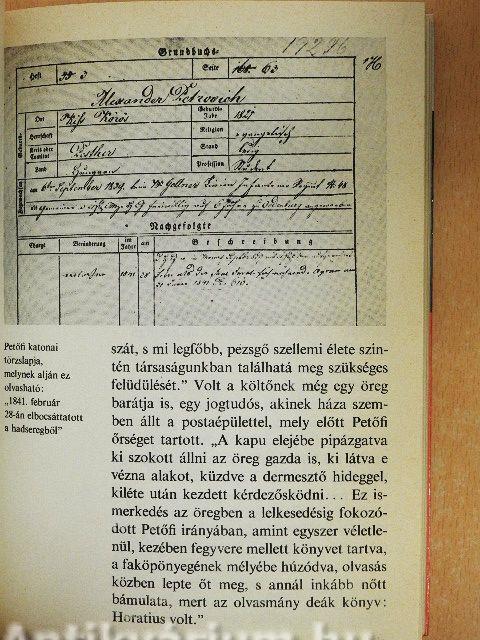 Grundbuchs-
17296
176
Heft 3 Seite 63
Alexander Petrovich
Ort Kiss Körös Geburts-Jahr
Herrschaft Religion evangelisch
Kreis oder Comitat Pesther Stand ledig
Land Hungarn Profession Student
Nachgefolgte
Charge Veränderung im Jahre am Beschreibung
1841 28
Petőfi katonai
törzslapja,
melynek alján ez
olvasható:
„1841. február
28-án elbocsáttatott
a hadseregből”
szát, s mi legfőbb, pezsgő szellemi élete szin-
tén társaságunkban találhatá meg szükséges
felüdülését.” Volt a költőnek még egy öreg
barátja is, egy jogtudós, akinek háza szem-
ben állt a postaépülettel, mely előtt Petőfi
őrséget tartott. „A kapu elejébe pipázgatva
ki szokott állni az öreg gazda is, ki látva e
vézna alakot, küzdve a dermesztő hideggel,
kiléte után kezdett kérdezősködni... Ez is-
merkedés az öregben a lelkesedésig fokozó-
dott Petőfi irányában, amint egyszer véletle-
nül, kezében fegyvere mellett könyvet tartva,
a faköpönyegének mélyébe húzódva, olvasás
közben lepte őt meg, s annál inkább nőtt
bámulata, mert az olvasmány deák könyv:
Horatius volt.”
Antikvarium.hu